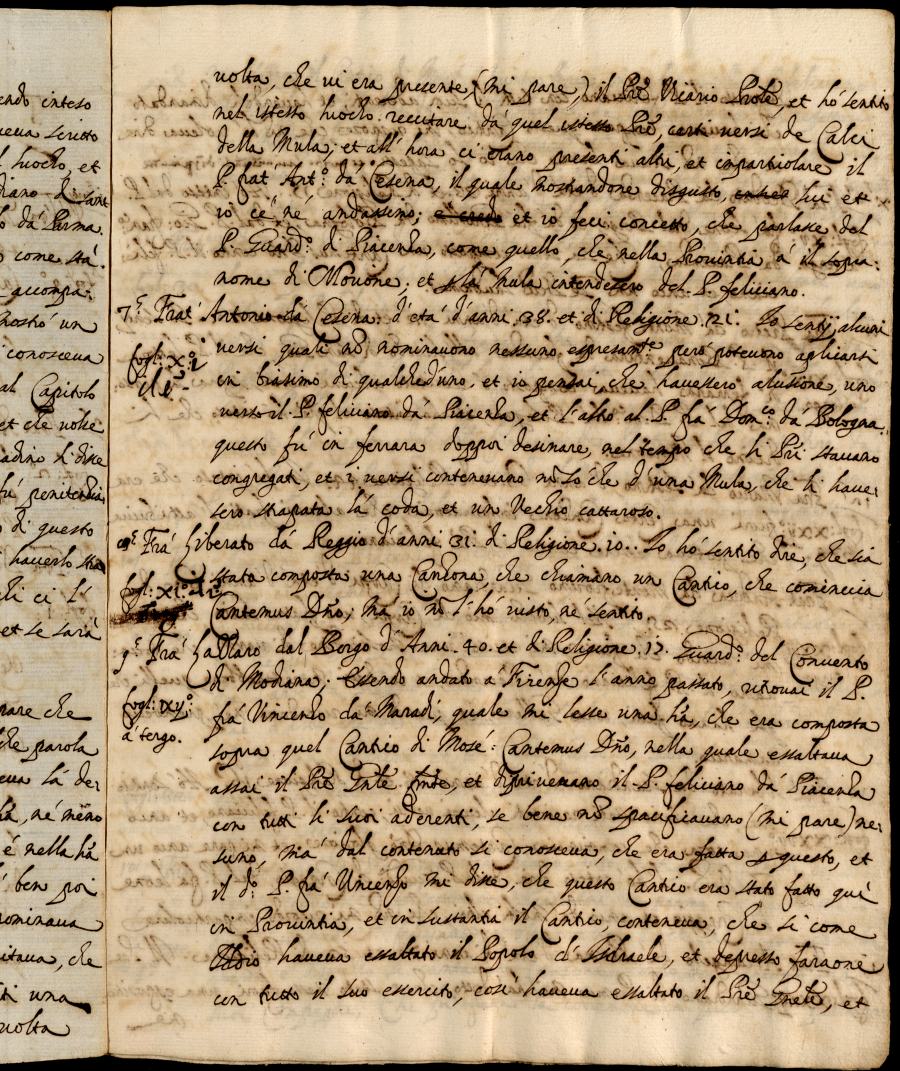 endo inteso
ueua scritto
luocho, et
diano di sant
dà Parma.
come stà.
accompa:
mostrò un
conosceua
al Capitolo
et che uolse
adino li disse
fù penitentia
di questo
hauerlo
li ci l'
et se sarà
pare che
che parola
eua la de:
hà, né meno
è nella hà
ben poi
nominaua
itaua, che
ti una
uolta
uolta, che ui era presente, (mi pare,) il Prẽ Vicario Prõle, et hò sentito
nel istesso luocho reccitare da quel istesso Prẽ, certi uersi de Calci
della Mula; et all' hora ci erano presenti altri, et imparticolare il
P. frat' Ant.º da Cesena, il quale mostrandone disgusto, lui et
io ce né andassimo; e credo et io feci concetto, che parlasse del
P. Guard.º di Piacenza, come quello, che nella Prouintia à il sopra:
nome di Motione; et p la Mula intendesero del P. feliciano.
7.º Frat' Antonio da Cesena d'età d'anni .38. et di Religione .21. Io sentij alcuni
fogl: x.º
uersi quali nõ nominauono nessuno espresam.te però poteuono aplicarsi
in biasimo di qualched'uno, et io pensai, che hauessero alusione, uno
uerso il P. feliciano da Piacenza, et l'altro al P. frà Dom.co dà Bologna.
questo fù in ferrara doppoi desinare, nel tempo che li Prĩ stauano
congregati, et i uersi conteneuano nõ sò che d'una Mula, che li haue:
sero strapata la coda, et un Vechio cattaroso.
Frà Liberato dà Reggio d'anni .31. di Religione .10.. Io hò sentito dire, che sia
fogl: xi.º
stata composta una Canzona, che chiamano un Cantico, che comincia
Cantemus Dño; mà io nõ l'hò uisto, né sentito.
9.º Frà Hillaro dal Borgo d'Anni .40. et di Religione .17. Guard.º del Conuento
di Modiana; Essendo andato à Firenze l'anno passato, ritrouai il P.
fogl: xij.º
frà Vincenzo da Maradi, quale mi lesse una hã, che era composta
à tergo.
sopra quel Cantico di Mosé: Cantemus Dño, nella quale essaltaua
assai il Prẽ Gñle, et diminuiuano il P. feliciano dà Piacenza
con tutti li suoi aderenti, se bene nõ spacificauano (mi pare) ne:
suno, ma' dal contenuto si conosceua, che era fatta p questo, et
il d.º P. frà Vincenzo mi disse, che questo Cantico era stato fatto quà
in Prouintia, et in sustantia il Cantico, conteneua, che si come
Iddio haueua essaltato il Popolo d'Isdraele, et depresso faraone
con tutto il suo essercito, così haueua essaltato il Prẽ Gnẽle, et